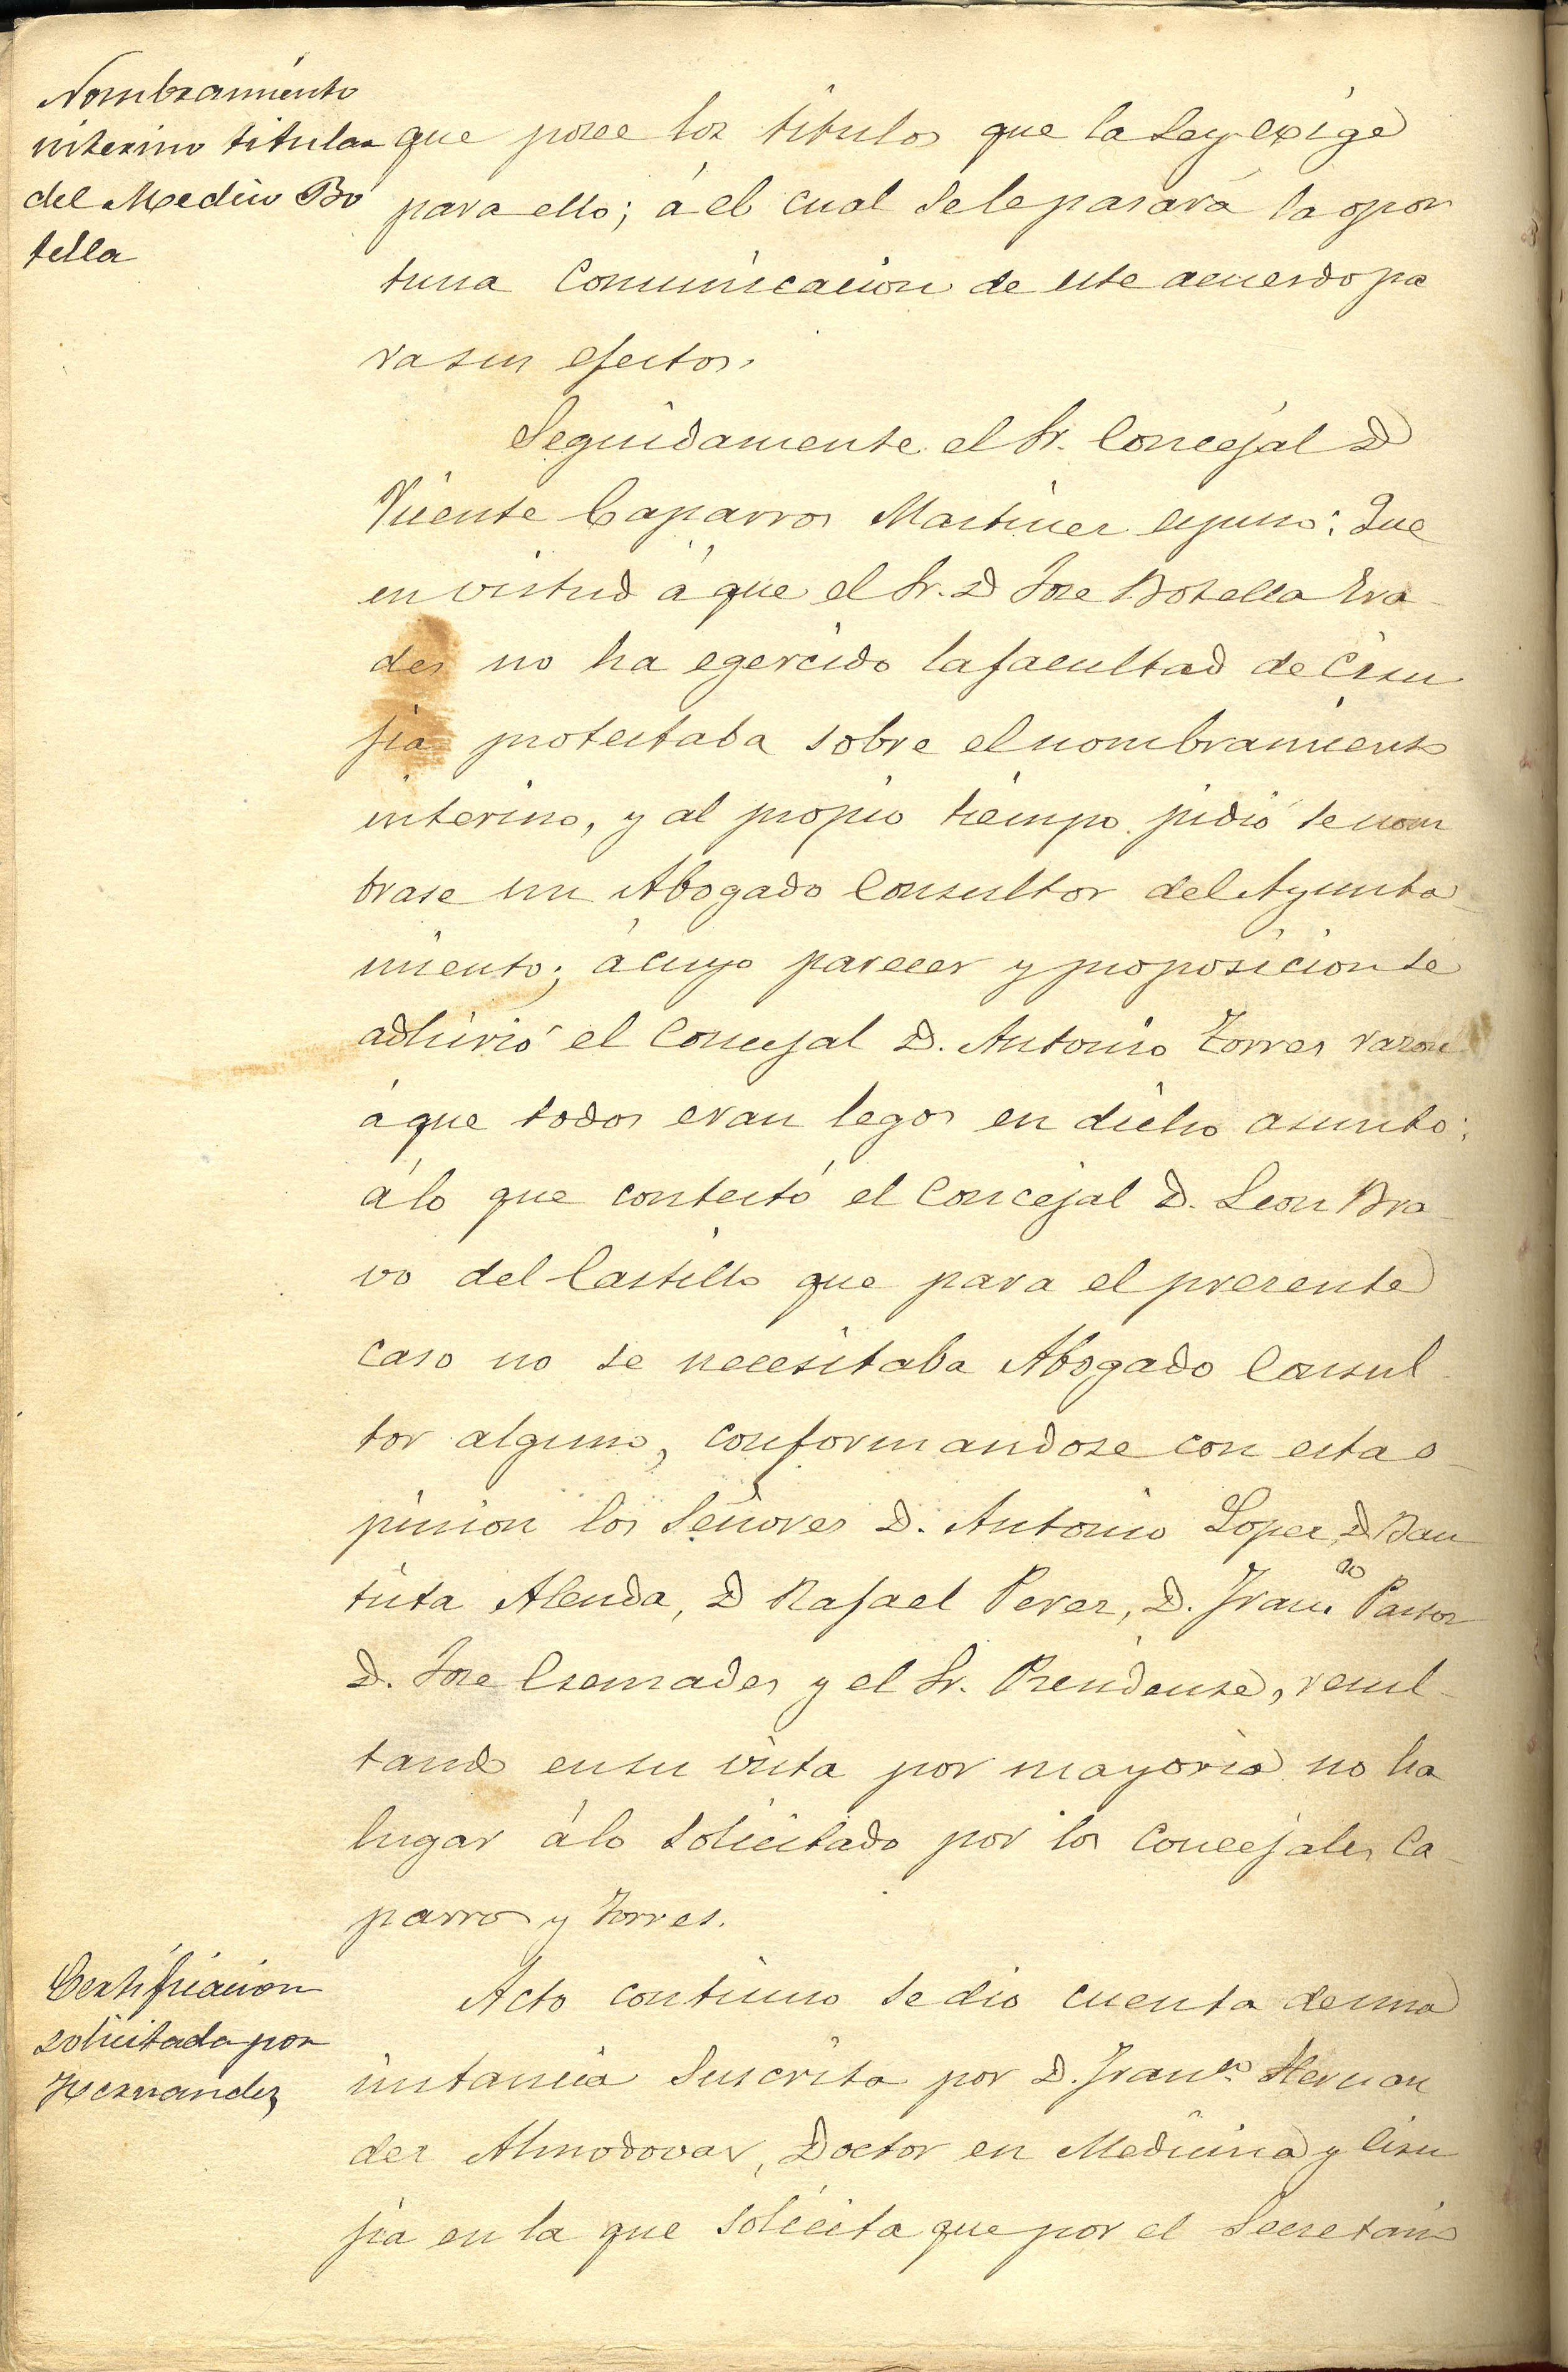 Nombramiento
interino titular
del Medico Bo
tella
que posee los titulos que la Ley exige
para ello; á el cual se le pasará la opor
tuna comunicacion de este acuerdo pa
ra sus efectos.
Seguidamente el Sr. Concejal D
Vicente Caparros Martinez espuso: Que
en virtud á que el Sr. D Jose Botella Era-
des no ha egercido la facultad de Ciru
jia protestaba sobre el nombramiento
interino, y al propio tiempo pidió se nom
brase un Abogado Consultor del Ayunta-
miento; á cuyo parecer y proposicion se
adhirió el Concejal D. Antonio Torres razon
á que todos eran legos en dicho asunto;
á lo que contestó el Concejal D. Leon Bra-
vo del Castillo que para el presente
caso no se necesitaba Abogado Consul-
tor alguno, conformandose con esta o-
pinion los Señores D. Antonio Lopez, D Bau
tista Alenda, D Rafael Perez, D. Franco. Pastor
D. Jose Cremades y el Sr. Presidente, resul-
tando en su vista por mayoria no ha
lugar á lo solicitado por los Concejales Ca-
parros y Torres.
Certificacion
solicitada por
Hernandez
Acto continuo se dio cuenta de una
instancia suscrita por D. Franco. Hernan
dez Almodovar, Doctor en Medicina y Ciru
jia en la que solicita que por el Secretario